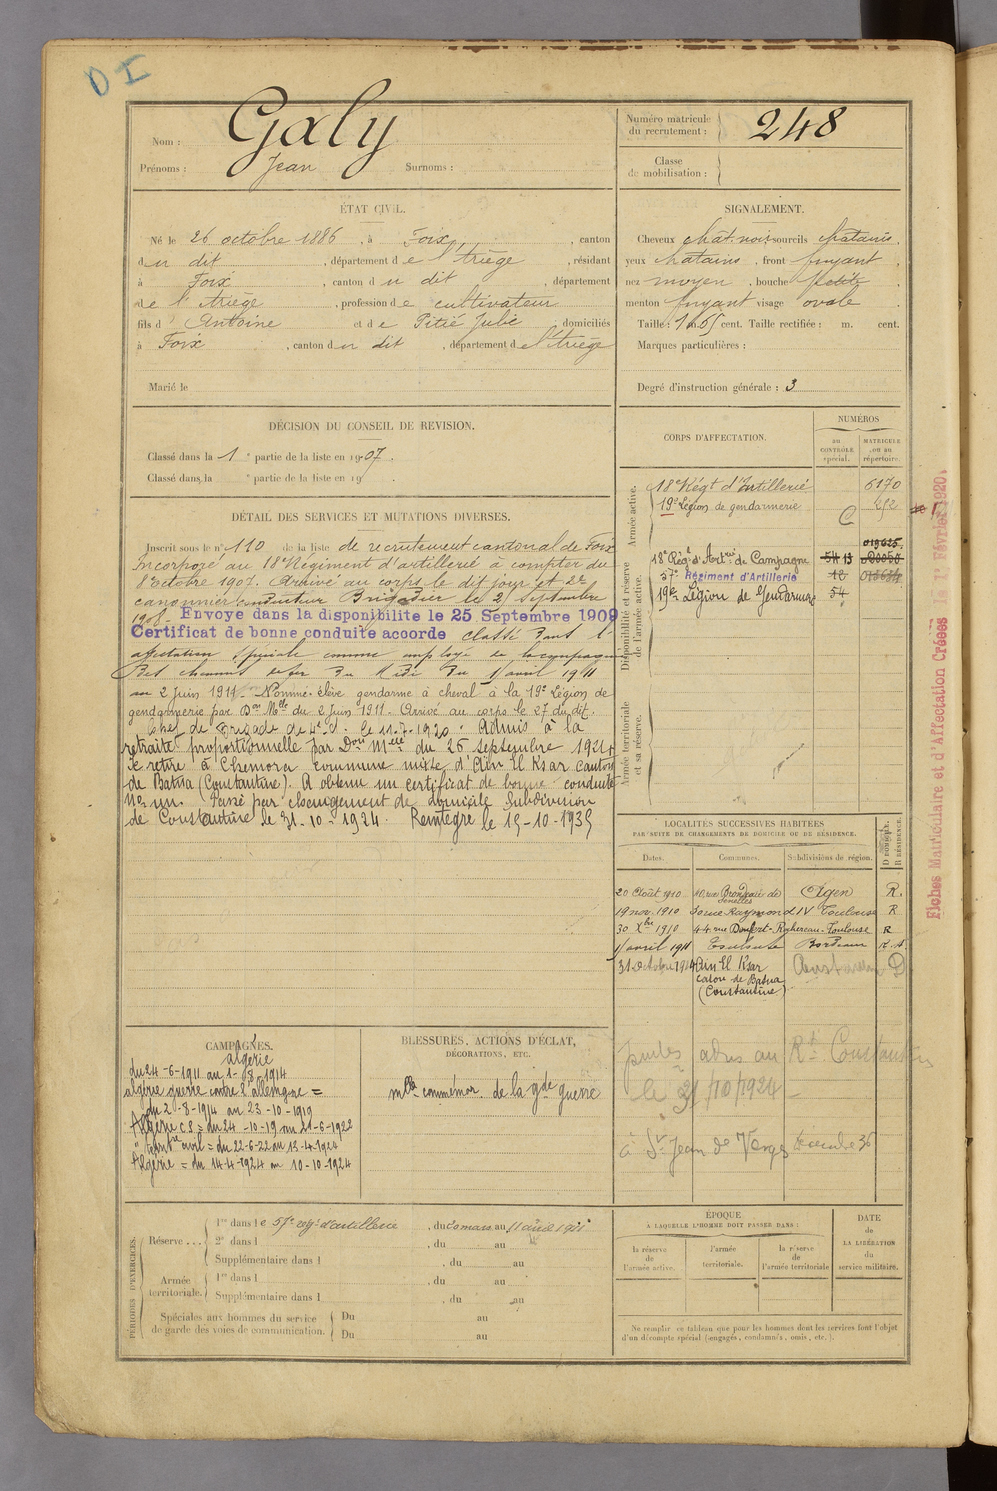 D I
Nom : Galy
Prénoms : Jean Surnoms :
Numéro matricule du recrutement : 248
Classe de mobilisation :
ÉTAT CIVIL.
Né le 26 octobre 1886, à Foix, canton
du dit, département de l'Ariège, résidant
à Foix, canton du dit, département
de l'Ariège, profession de cultivateur
fils d' Antoine et de Pitié Jubé domiciliés
à Foix, canton du dit, département de l'Ariège
Marié le
SIGNALEMENT.
Cheveux chât. noir sourcils châtains,
yeux châtains, front fuyant,
nez moyen, bouche petite,
menton fuyant visage ovale.
Taille : 1 m. 65 cent. Taille rectifiée : m. cent.
Marques particulières :
Degré d'instruction générale : 3
DÉCISION DU CONSEIL DE REVISION.
Classé dans la 1e partie de la liste en 1907.
Classé dans la e partie de la liste en 19
DÉTAIL DES SERVICES ET MUTATIONS DIVERSES.
Inscrit sous le n° 110 de la liste de recrutement cantonal de Foix
Incorporé au 18e Régiment d'artillerie à compter du
1 octobre 1907. Arrivé au corps le dit jour et 2e
canonnier conducteur Brigadier le 2 Septembre
1908. Envoyé dans la disponibilité le 25 Septembre 1909
Certificat de bonne conduite accordé classé dans l'
affectation spéciale comme employé de la compagnie
Des chemins de fer du Midi du 1 avril 1911
au 2 Juin 1911. Nommé élève gendarme à cheval à la 19e Légion de
gendarmerie par Don Mlle du 2 Juin 1911. Arrivé au corps le 27 du dit.
Chef de Brigade de 4e Cl. le 11.7.1920. Admis à la
retraite proportionnelle par Don Melle du 26 septembre 1924
se retire à Chemora commune mixte d'Ain El Ksar canton
de Batna (Constantine). A obtenu un certificat de bonne conduite
No un. Passé par changement de domicile Subdivision
de Constantine le 31-10-1924. Réintégré le 15-10-1935
CORPS D'AFFECTATION.
NUMÉROS
au CONTRÔLE spécial.
MATRICULE ou au répertoire.
Armée active.
18e Régt d'Artillerie 6170
19e Légion de gendarmerie C 252
Disponibilité et réserve de l'armée active.
013625
18e Régt d'Artrie de Campagne 54 13
57e Régiment d'Artillerie 12
19e Légion de Gendarmes 54
Armée territoriale et sa réserve.
Fiches Matriculaire et d'Affectation Créées le 1r Février 1920.
LOCALITÉS SUCCESSIVES HABITÉES
PAR SUITE DE CHANGEMENTS DE DOMICILE OU DE RÉSIDENCE.
Dates. Communes. Subdivisions de région. D DOMICILE. R RÉSIDENCE.
20 Août 1910 Agen R.
19 nov. 1910 30 rue Raymond IV Toulouse R
30 Xbre 1910 44 rue Denfert-Rochereau. Toulouse R
1 avril 1911 Toulouse Bordeaux
31 octobre 1924 Ain El Ksar Constantine D
canton de Batna
(Constantine)
CAMPAGNES.
algérie
du 24-6-1911 au 1-8-1914
algérie guerre contre l'allemagne =
du 2-8-1914 au 23-10-1919
Algérie C.S = du 24-10-19 au 21-6-1922
" terrre civil = du 22-6-22 au 13-4-1924
Algérie = du 14-4-1924 au 10-10-1924
BLESSURES, ACTIONS D'ÉCLAT,
DÉCORATIONS, ETC.
mlle commémor. de la gde guerre
adres au Rt Constantine
le 31/10/1924
à St Jean de Verges décembre 36
PÉRIODES D'EXERCICES.
Réserve ... 1re dans le 57e regt d'artillerie, du 20 mars au 11 avril 1911
2e dans l , du au
Supplémentaire dans l , du au
Armée territoriale. 1re dans l , du au
Supplémentaire dans l , du au
Spéciales aux hommes du service de garde des voies de communication. Du au
Du au
ÉPOQUE
À LAQUELLE L'HOMME DOIT PASSER DANS :
la réserve de l'armée active.
l'armée territoriale.
la réserve de l'armée territoriale
DATE de LA LIBÉRATION du service militaire.
Ne remplir ce tableau que pour les hommes dont les services font l'objet
d'un décompte spécial (engagés, condamnés, omis, etc.).